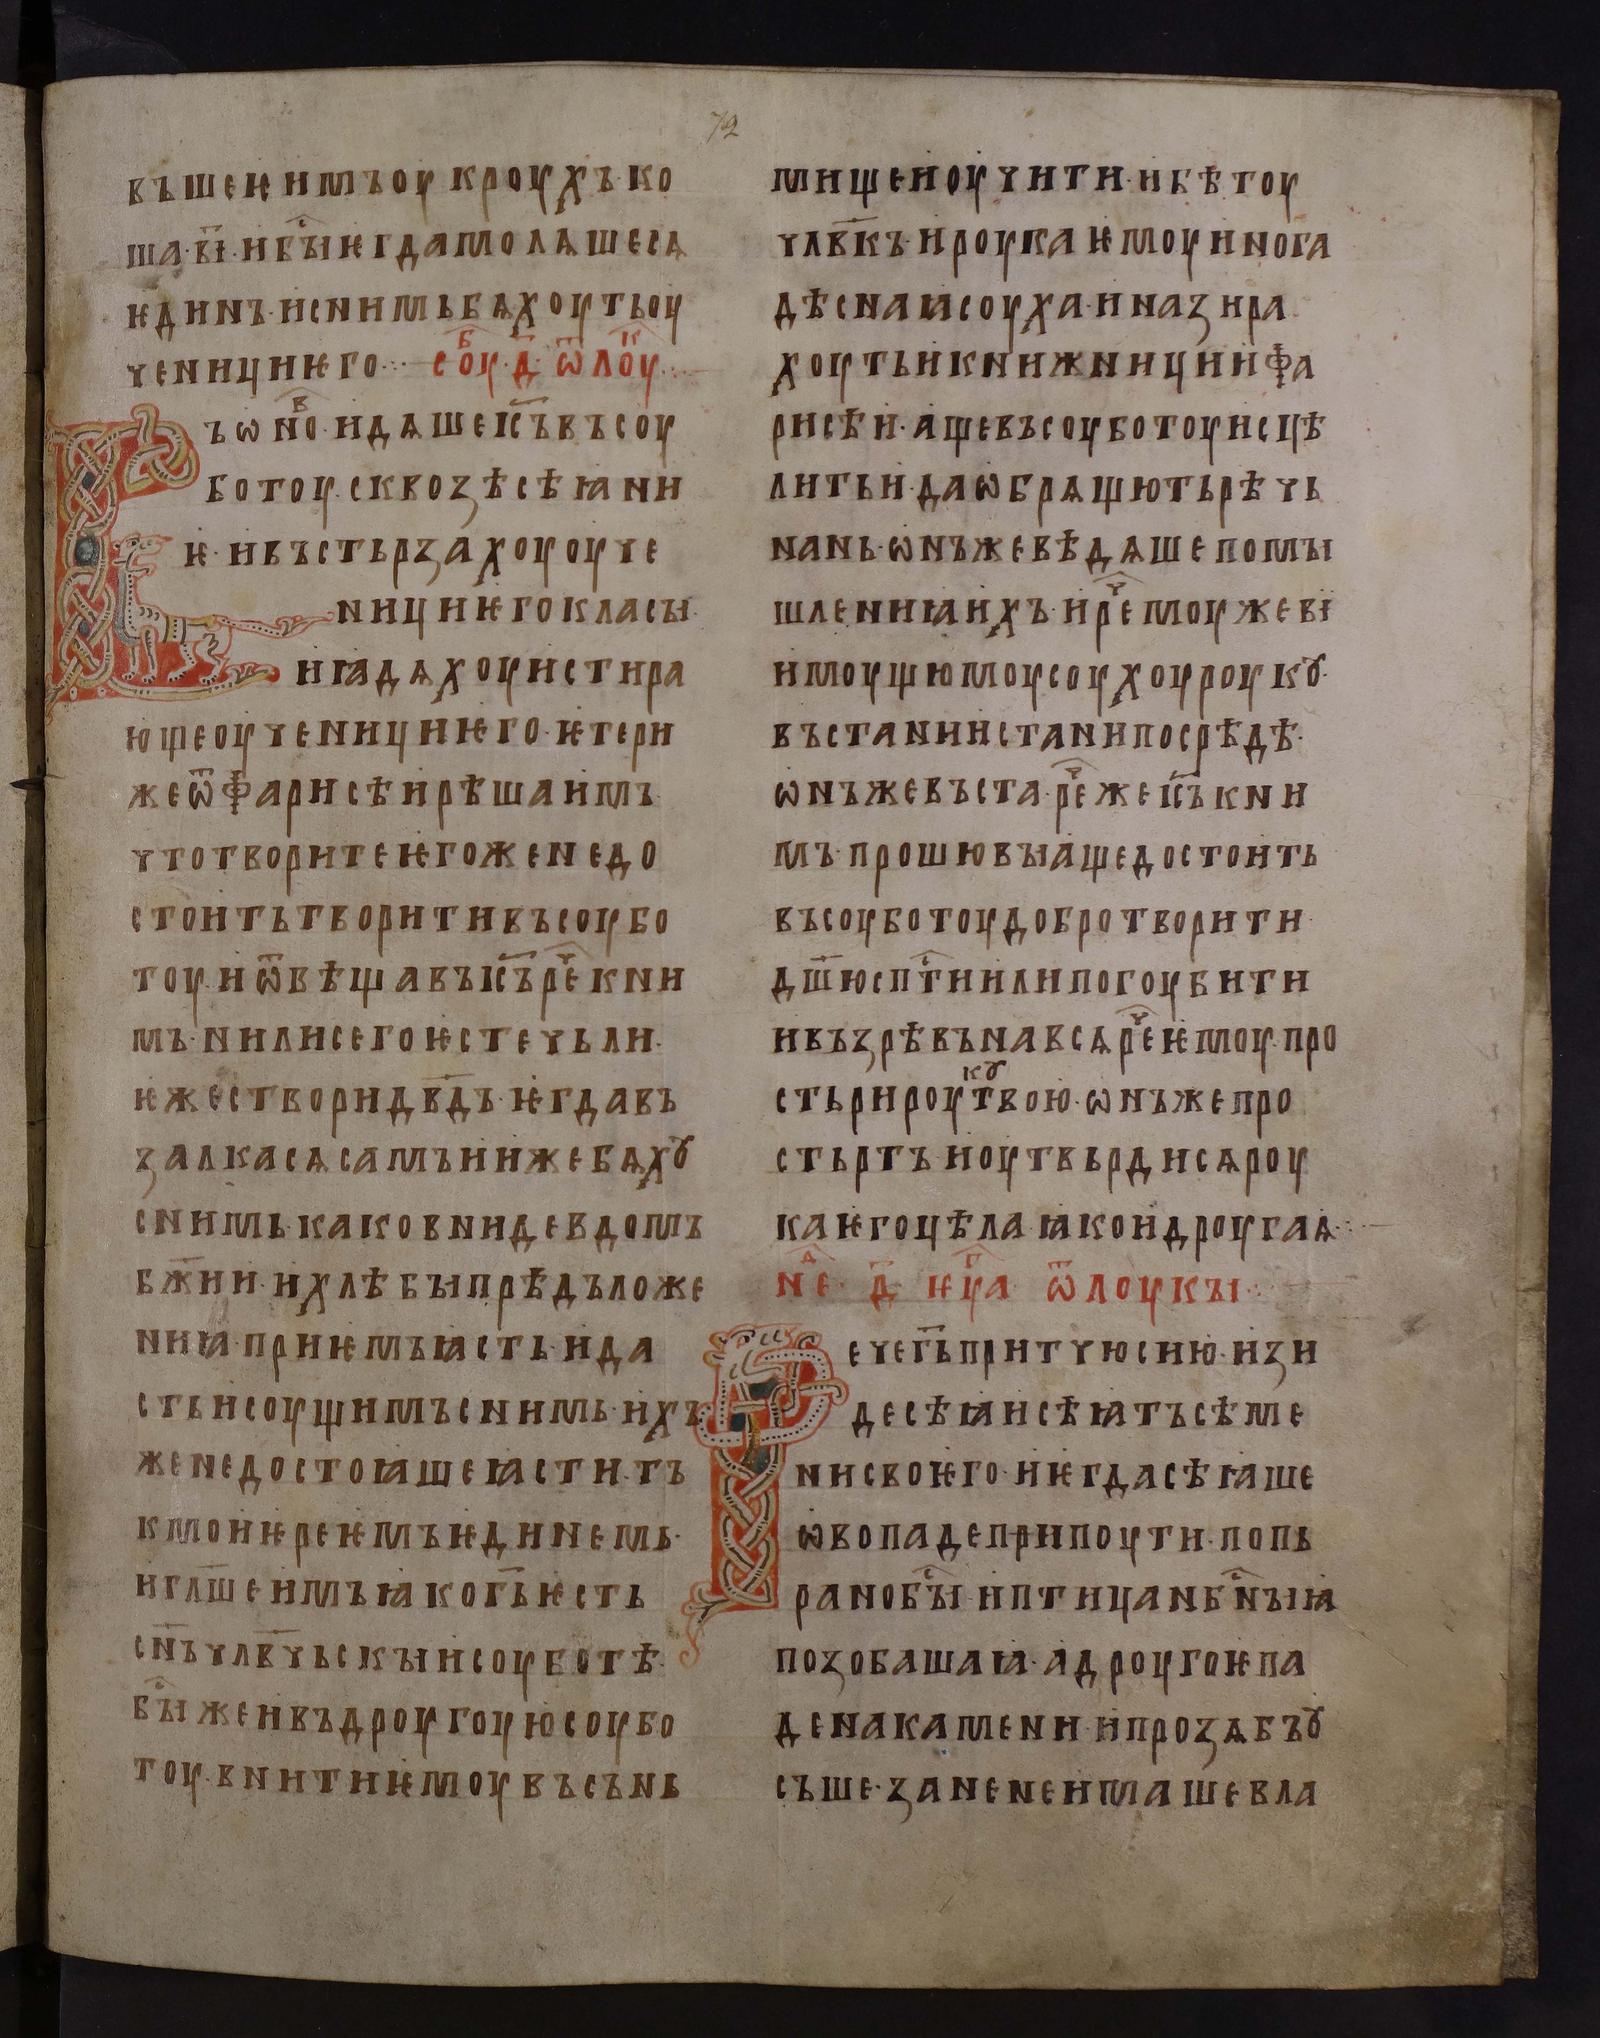 72
въшеѥимъоу кроухъко
ша·в҃і·ибꙑ̑ⷭ҇ѥгдамолѧшесѧ
ѥдинъ·иснимьбѧхоутьоу
ченициѥго·:· соуⷠ҇·д҃·ѿлоуⷦ҇·:·
Въѡноⷡ҇·идѧшеіс҃ъвъсоу
ботоу·сквозѣсѣꙗни
ѥ·ивъстьрзахооуоуче
нициѥгокласꙑ·
иꙗдѧхоуистира
ющеоученициѥго·ѥтери
жеѿфарисѣирѣшаимъ·
чтотворитеѥгоженедо
стоитьтворитивъсоубо
тоу·иѿвѣщавъіс҃ъреⷱ҇кни
мъ·нилисегоѥстечьли·
ѥжестворидв҃дъ·ѥгдавъ
залкасѧсамъиижебѧхꙋ
снимь·каковнидевдомъ
бж҃ии·ихлѣбꙑпрѣдъложе
ниꙗ·приѥмъꙗсть·ида
стьисоущимъснимь·ихъ
женедостоꙗшеꙗсти·тъ
кмоиѥреѥмъѥдинемь·
игл҃шеимъꙗкогь҃ѥсть
сн҃ъчлв҃чьскꙑисоуботѣ·
бꙑⷭ҇жеивъдроугоуюсоубо
тоу·внитиѥмоувъсънь
мищеиоучити·ибѣтоу
члв҃къ·ироукаѥмоуинога
дѣснаꙗсоуха·иназира
хоутьикнижницииифа
рисѣи·ащевъсоуботоуисцѣ
литьи·даѡбрѧщютьрѣчь
нань·ѡнъжевѣдѧшепомꙑ
шлениꙗихъ·иреⷱ҇моужеві
имоущюмоусоухоуроукꙋ·
въстаниистанипосрѣдѣ·
ѡнъжевъста·реⷱ҇жеіс҃ъкни
мъ·прошювꙑащедостоить
въсоуботоудобротворити·
дш҃юспⷭ҇тиилипогоубити
ивъзрѣвънавсѧреⷱ҇ѥмоу·про
стьрироукꙋтвою·ѡнъжепро
стьртъиоутвьрдисѧроу
каѥгоцѣлаꙗкоидроугаꙗ·:·
неⷣ·д҃·ѥуⷢ҇а ѿлоукꙑ·:·
Речегь҃притчюсию·изи
десѣꙗисѣꙗтъсѣме
нисвоѥго·иѥгдасѣꙗше
ѡвопадеприпоути·попь
ранобꙑⷭ҇·иптицанбⷭ҇нꙑꙗ
позобашаꙗ·адроугоѥпа
денакамени·ипрозѧбъꙋ
съше·заненеимашевла